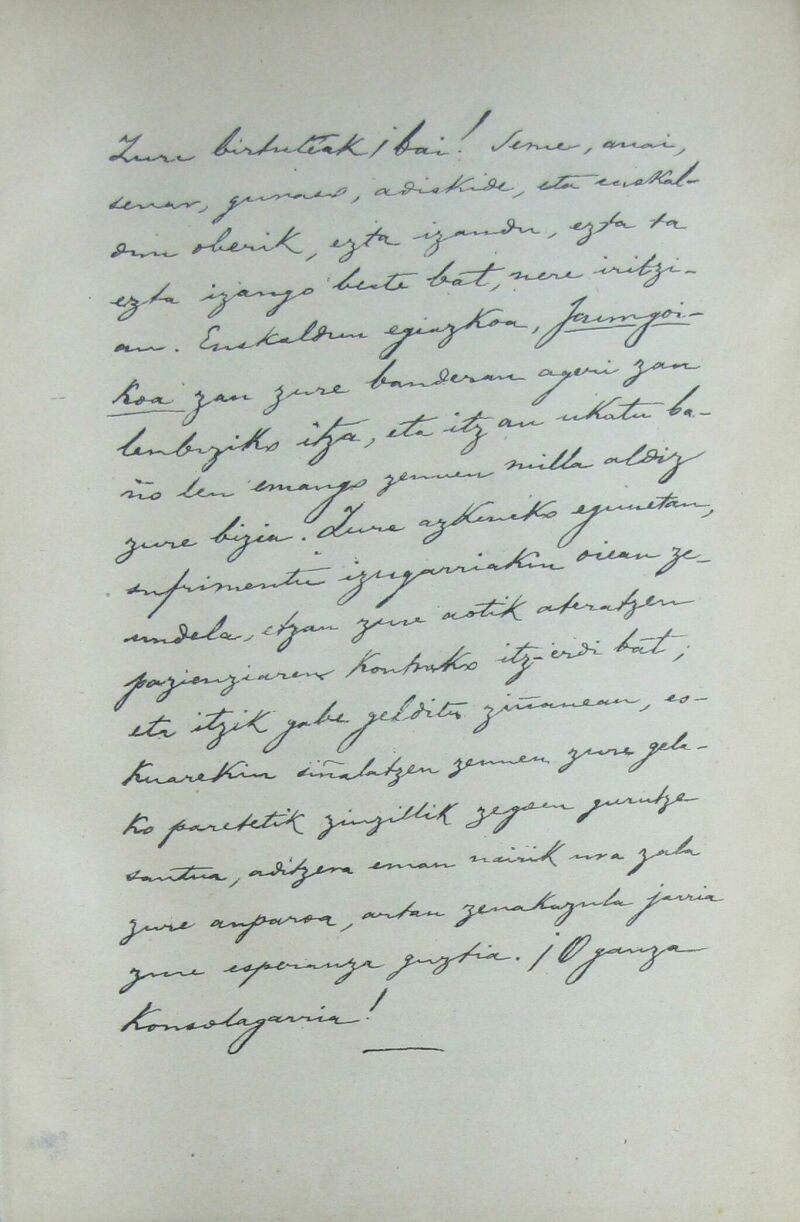 Zure birtuteak ¡bai! Seme, anai,
senar, guraso, adiskide, eta euskal-
dun oberik, ezta izandu, ezta ta
ezta izango beste bat, nere iritzi-
an. Euskaldun egiazkoa, Jaungoi-
koa zan zure banderan ageri zan
lenbiziko itza, eta itz au ukatu ba-
ño len emango zenuen milla aldiz
zure bizia. Zure azkeneko egunetan,
sufrimentu izugarriakin oiean ze-
undela, etzan zure aotik ateratzen
pazienziaren kontrako itz-erdi bat;
eta itzik gabe gelditu ziñanean, es-
kuarekin siñalatzen zenuen zure gela-
ko paretetik zinzillik zegoen gurutze
santua, aditzera eman nairik ura zala
zure anparoa, artan zenakazula jarria
zure esperanza guztia. ¡O gauza
konsolagarria!